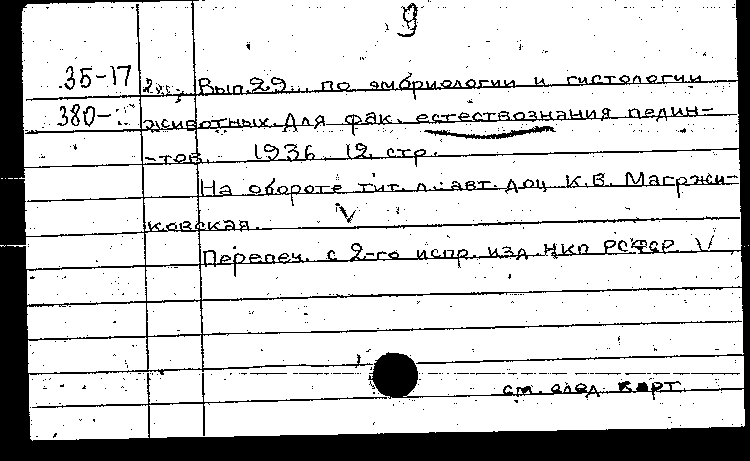 9
35-17 2 экз. Вып. 29... по эмбриологии и гистологии
380- животных. Для фак. естествознания педин-
-тов. 1936. 12. стр.
На обороте тит. л.: авт. доц К. В. Магржи-
ковская.
Перепеч. с 2-го испр. изд. НКП РСФСР
см. след. карт.